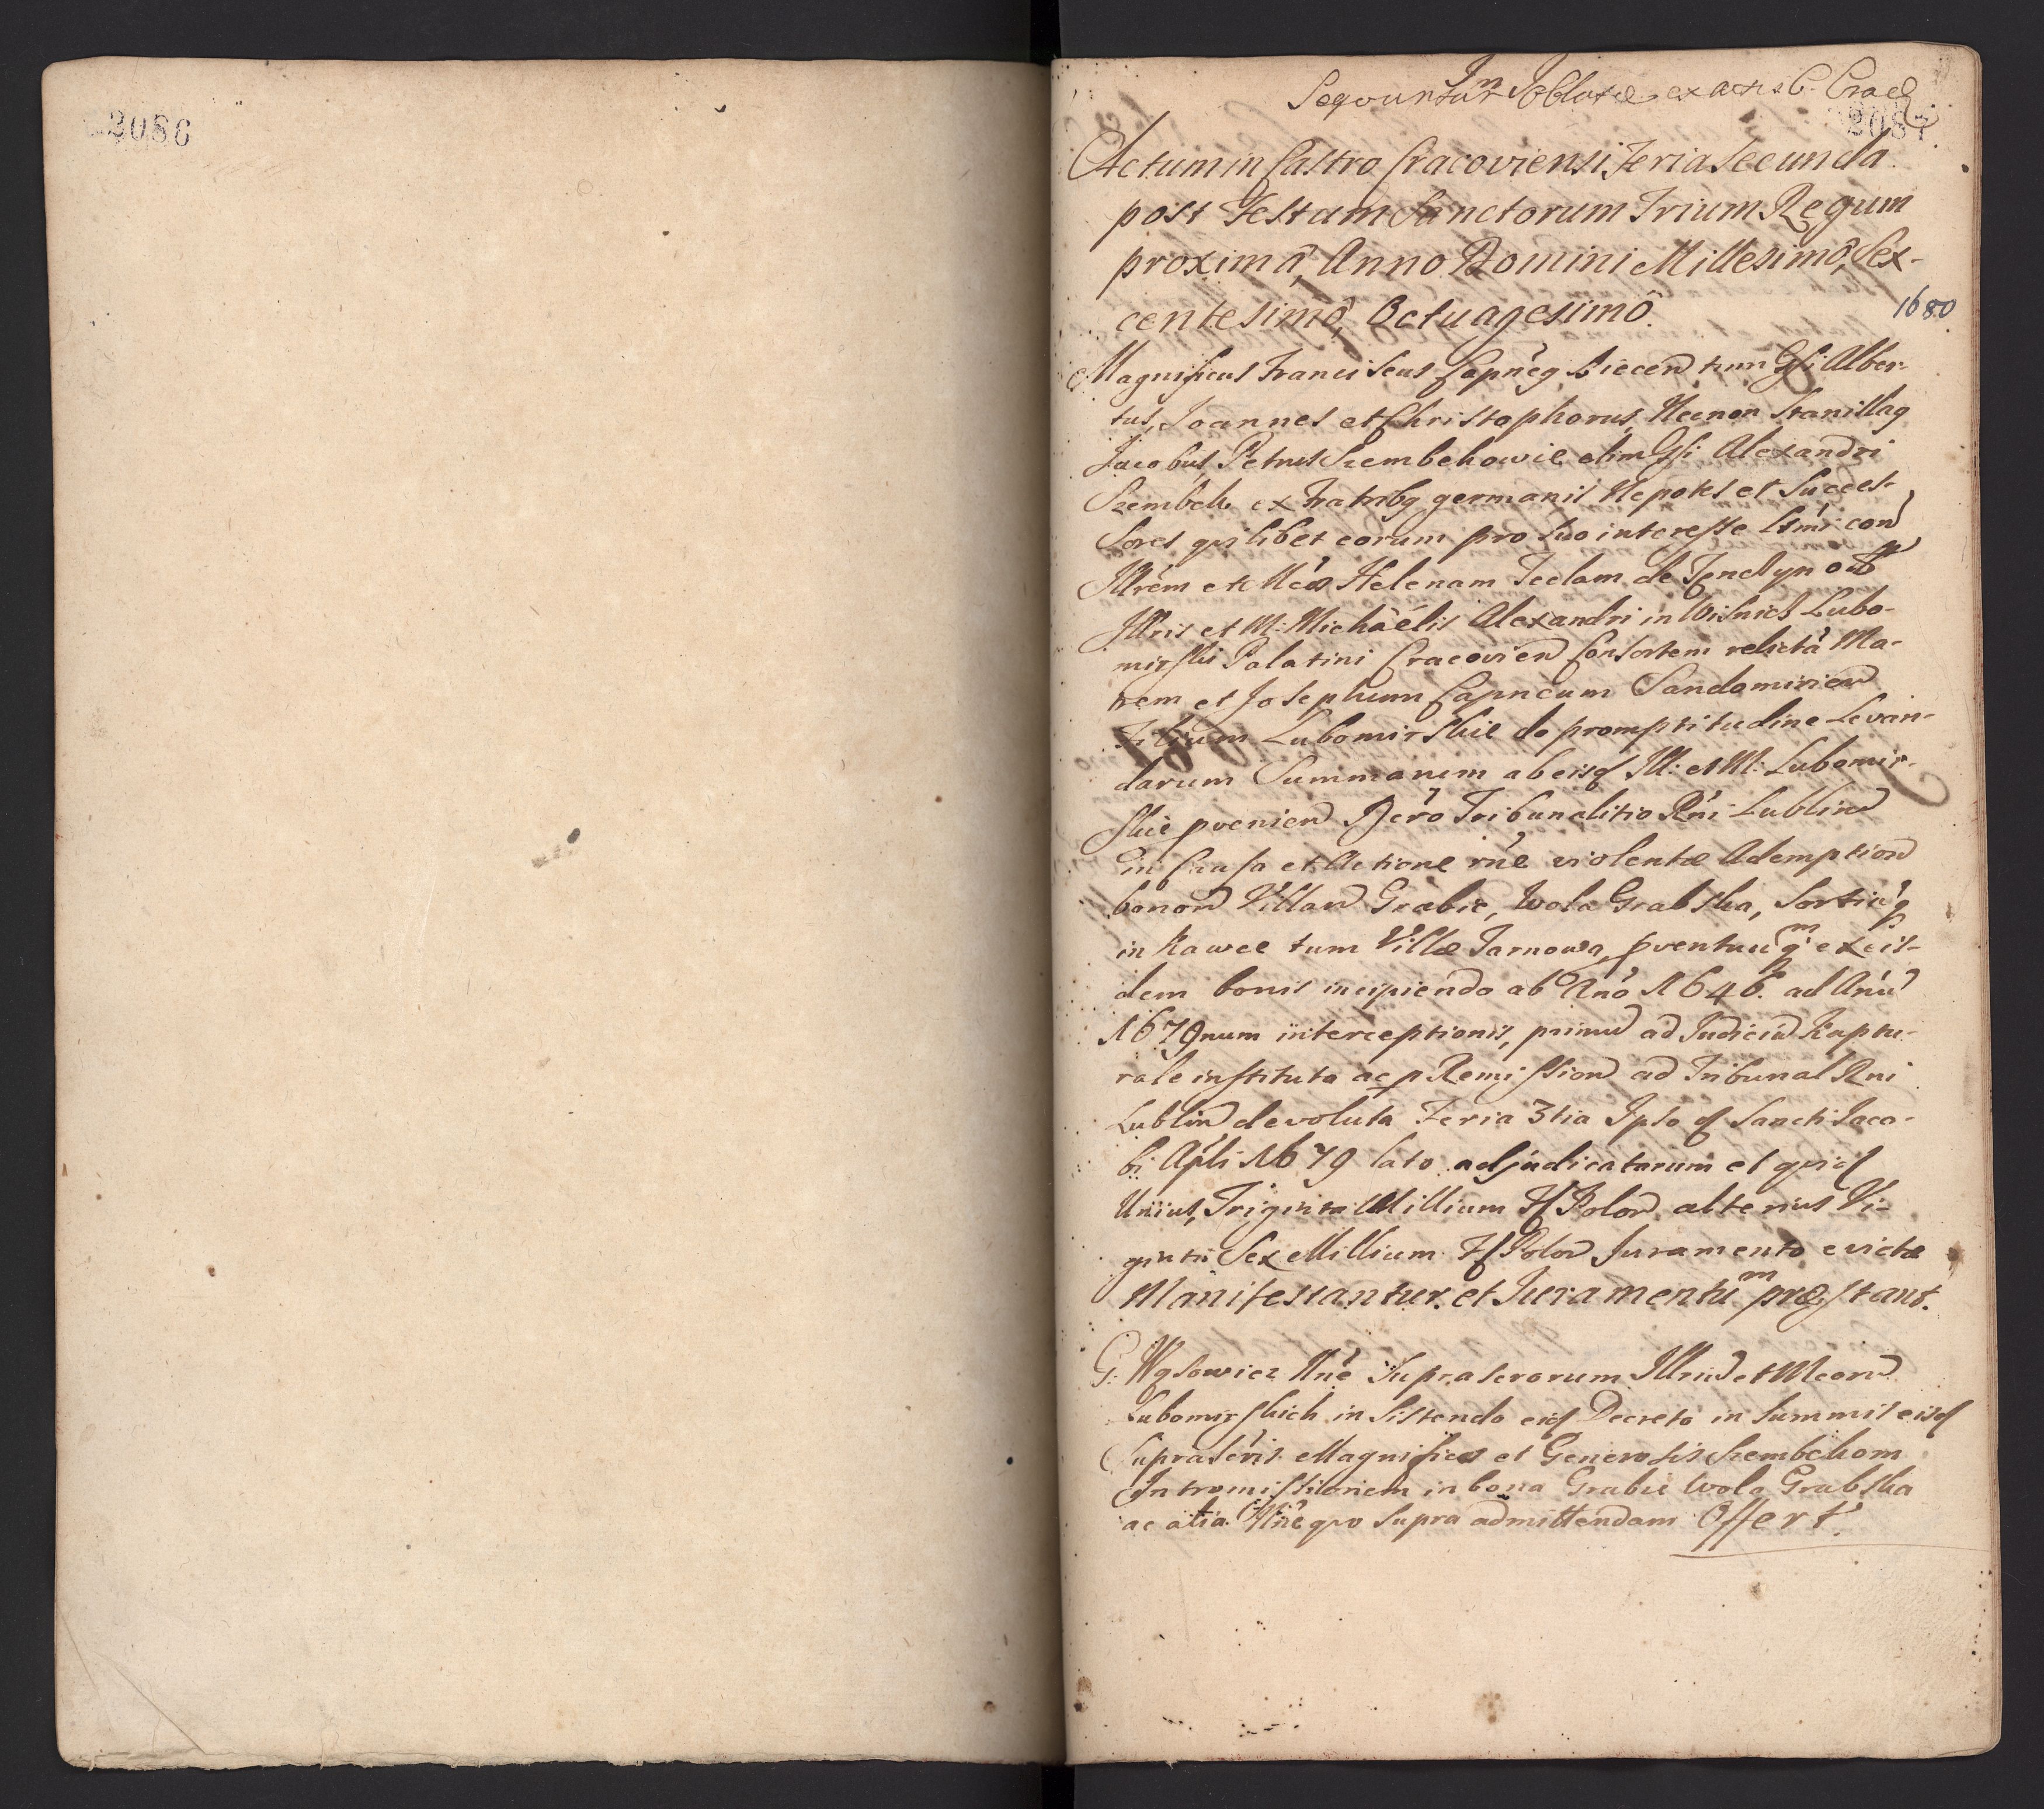 2086
Seqvuntur In Oblatæ ex actis C. Crac
2087
Actum in Castro Cracoviensi Feria Secunda
post Festum Sanctorum Trium Regum
proximâ, Anno Domini Millesimô, Sex-
centesimô, Octuagesimô.
1680
Magnificus Franciscus Capneg Biecen tum Gsi Alber-
tus, Joannes et Christophorus, Necnon Stanislag
Jacobus Petrus Szembekowie olim Gsi Alexandri
Szembek ex Fratribg germanis Nepotes et Succes-
sores qvilibet eorum pro suo interesse
Illrem et Helenam Teclam de Tenczyn
Illris et M: Michaëlis Alexandri in Wisnicz Lubo-
mirski Palatini Cracovien Consortem relictâ Ma-
trem et Josephum Capneum Sandomirien
Filium Lubomirskie de promptitudine Levan-
darum Summarum ab eisd Ill: et M: Lubomir-
skie pvenien Dcro Tribunalitio Rni Lublin
in Causa et Actione rne violentæ Ademption
bonor Villar Grabie, Wola Grabska, Sortiug
in Rawce tum Villæ Tarnowa, pventuumq exeis-
dem bonis incipiendo ab Ano 1646. ad Anu
1679num interceptionis, primu ad Judiciu Kaptu-
rale instituta ac p Remission ad Tribunal Rni
Lublin devoluta Feria 3tia Ipso d Sancti Jaco-
bi Apli 1679 lato adjudicatarum et qvid
Unius, Triginta Millium Fl Polon alterius Vi-
ginti Sex Millium Fl Polon Juramento evictæ
Manifestantur. et Juramentum præstant.
G: Wąsowicz Nne Suprascrorum Illriu et Mcorum
Lubomirskich in Sistendo eid Decreto in Summis eisd
Suprascris Magnificis et Generosis Szembekom
Intromissionem in bona Grabie Wola Grabska
ac alia Nne qvo Supra admittendam Offert.